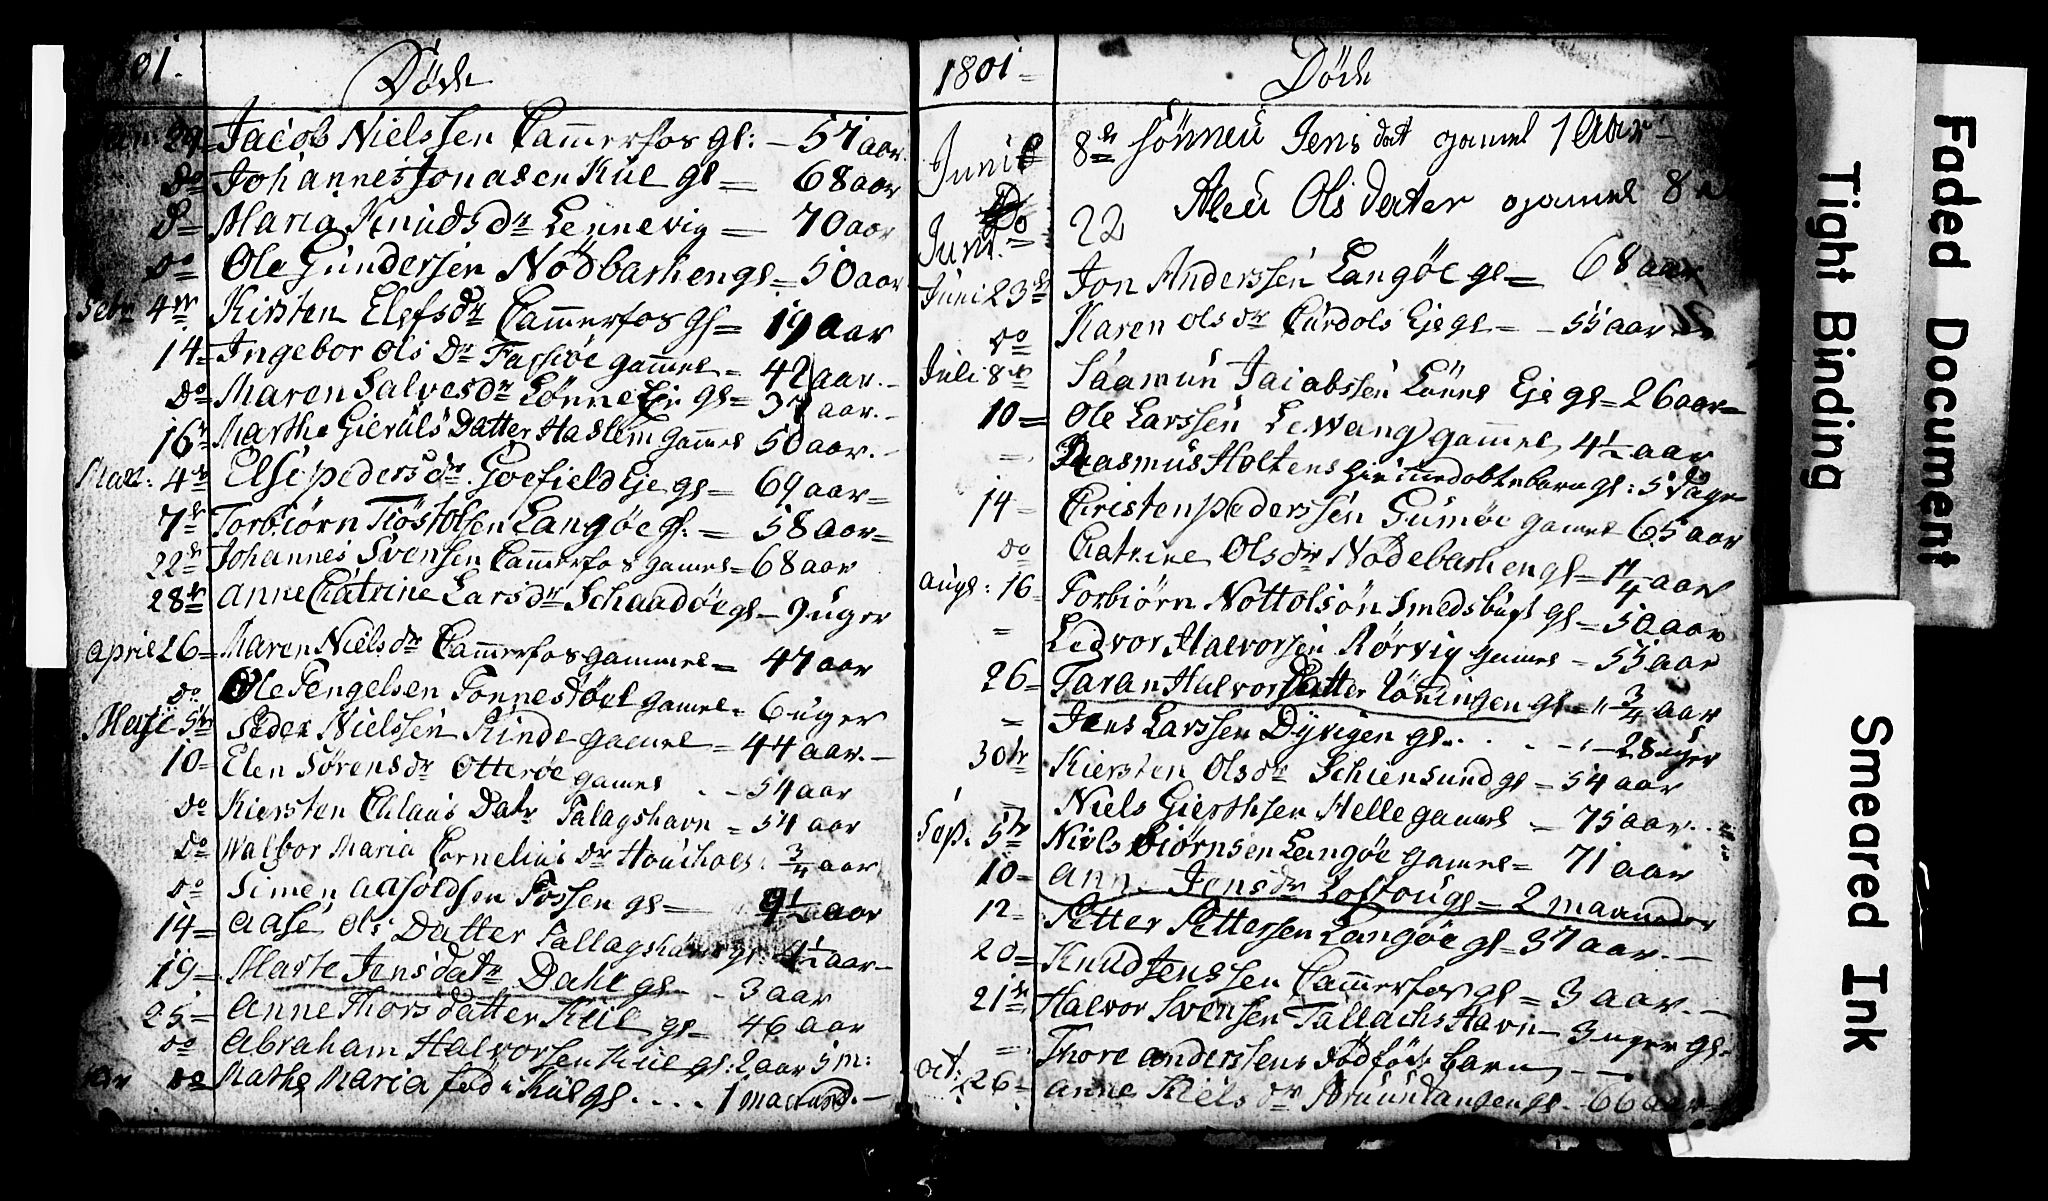 1801.
Døde
Jan: 29 Jacob Nielssen Cammerfos gl: – 57 aar.
do Johannes Jonasen Kiil gl = 68 aar
do Maria Knuds dr Lennevig = 70 aar
do Ole Gundersen Nødbarken gl = 50 aar
Febr 4de Kirsten Elefs dr Cammerfos gl = 19 aar
14 = Ingebor Ols dr Farsiøe gammel = 42 aar. –
do Maren Salves dr Lønne Eje gl = 37 aar. –
16 = Marthe Gieruls Datter Haslem gammel 50 aar. –
Mart: 4de Else peders dr. Goefield Eje gl = 69 aar =
7de Torbiørn Tiøstolsen Langøe gl. = 58 aar =
22de Johannes Svensen Cammerfos gamel = 68 aar
28de Anne Catrine Lars dr Schaadøe gl – 9 uger
April 26 = Maren Niels dr Cammerfos gammel = 47 aar
do Ole Tengelsen Tonnesdøel gamel = 6 uger
Maji 5te Peder Nielssen Kinde gamel = 44 aar. –
10 = Elen Sørens dr Otterøe gamel . – 54 aar
do Kiersten Chlaus Datr Talagshavn = 54 aar
do Walbor Maria Cornelius dr Houcholt. 3/4 aar
do Simen Aasoldsen Fossen gl = 9 1/2 aar
14 = Aase Ols Datter Tallagshavn gl: 4 1/2 aar –
19 = Marte Jens datr Dahl gl – – 3 aar
25 = Anne Thors datter Kiil gl = 46 aar
do Abraham Halvorssen Kiil gl: 2 aar 5 m:
do Mathe Maria fød i Kiil gl. . . . 1 maaned. –
1801 =
Døde
Junii 8de sønnen Jens dat gamel 1 Aar –
Do
Juni. = 22 Aleu Ols dater gamel 8
Juni 23de Jon Anderssen Langøe gl = 68 aar
do Karen Ols dr Curdøls Eje gl = – 55 aar
Juli 8de Saamun Jacobssen Lønne Eje gl = 26 aar =
10 = Ole Larssen Lewang gammel 4 1/2 aar
= Rasmus Holtens hiemmedøbte barn gl: 5 dage
14 = Christen pederssen Gumøe gamel 65 aar
do Catrine Ols dr Nødebarken gl = 1 1/4 aar
Augs: 16 = Torbiørn Nottolsøn Smedsbugt gl = 50 aar
= Ledvor Halvorsen Rørvig gamel = 55 aar
26 = Taran Halvors Datter Løningen gl = " 3/4 aar
= Jens Larssen Dyvigen gl. . . . – – 28 uger
30te Kiersten Ols dr Schiensund gl = 54 aar
= Niels Gierthsen Helle gamel = 75 aar. .
Sep. 5te Niels Biørnsen Langøe gamel = 71 aar
10 = Anne Jens dr Loftou gl = 2 maaneder
12 = Petter Pettersen Langøe gl = 37 aar. –
20 = Knud Jenssen Cammerfos gl = 3 aar. –
21de Halvor Svensen Tallachs Havn – 3 uger gl =
= Thore Anderssens dødfødt barn – –
Oct: 26 = Anne Niels dr Bruunlangen gl. 66 aar
Faded Document
Tight Binding
Smeared Ink
5